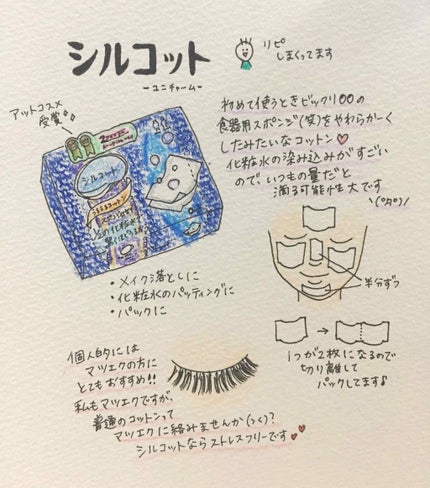 シルコット
-ユニチャーム-
リピ
しまくってます
アットコスメ
受賞
シルコット
初めて使うときビックリ!○○の
食器用スポンジ(笑)をやわらか〜く
したみたいなコットン♡
化粧水の染み込みがすごい
ので、いつもの量だと
滴る可能性大です
半分ずつ
・メイク落としに
・化粧水のパッティングに
・パックに
1つが2枚になるので
切り離して
パックしてます♪
個人的には
マツエクの方に
とてもおすすめ!!
私もマツエクですが、
普通のコットンって
マツエクに絡みませんか(つく)?
シルコットならストレスフリーです♥♥